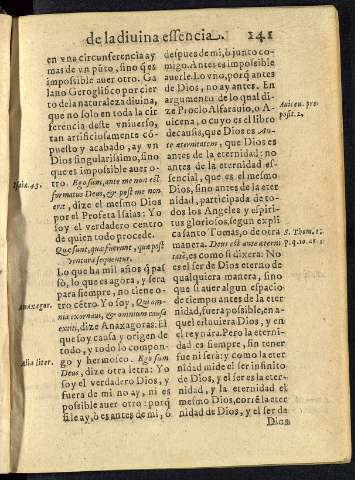 de la diuina essencia. 241
en vna circunferencia ay
mas de vn pũto, sino q̃ es
impossible auer otro. Ga
lano Geroglifico por cier
to de la naturaleza diuina,
que no solo en toda la cir
cunferencia deste vniuerso,
tan artificiosamente cõ
puesto y acabado, ay vn
Dios singularissimo, sino
que es impossible auer o-
tro. Ego sum, ante me non est
formatus Deus, & post me non
erit, dize el mesmo Dios
por el Profeta Isaias: Yo
soy el verdadero centro
de quien todo procede.
Que sunt, que fuerunt, que post
ventura sequentur.
Lo que ha mil años q̃ pas
sò, lo que es agora, y sera
para siempre, no tiene o-
tro cẽtro. Yo soy, Qui om-
nia exornaus, & omnium causa
extiti, dize Anaxagoras. El
que soy causa y origen de
todo, y todo lo compon-
go y hermoseo. Ego sum
Deus, dize otra letra: Yo
soy el verdadero Dios, y
fuera de mi no ay, ni es
possible auer otro: porq̃
si le ay, ò es antes de mi, ò
Isaia. 43.
Anaxagor.
Alia liter.
despues de mi, ò junto co-
migo. Antes es impossible
auerle. Lo vno, porq̃ antes
de Dios, no ay antes. En
argumento de lo qual di-
ze Proclo Alfarauio, o A-
uicena, o cuyo es el libro
de causis, que Dios es An-
te æternitatem, que es antes
de la eternidad: no
antes de la eternidad es-
sencial, que es el mesmo
Dios, sino antes de la eter
nidad, participada de to-
dos los Angeles y espiri-
tus gloriosos, segun expli
ca santo Tomas, o de otra
manera. Deus est ante æterni
tatẽ, es como si dixera: No
es el ser de Dios eterno de
qualquiera manera, sino
que si auer algun espacio
de tiempo antes de la eter
nidad, fuera possible, en a-
quel estuuiera Dios, y en
el reynara. Pero la eterni-
dad es siempre, sin tener
fue ni serà: y como la eter
nidad mide el ser infinito
de Dios, y el ser es la eter-
nidad, y la eternidad el
mesmo Dios, corre la eter
nidad de Dios, y el ser de
Dios
Auicen. pro
posit. 2.
S. Thom. 1.
p. q. 10. ar. 2.